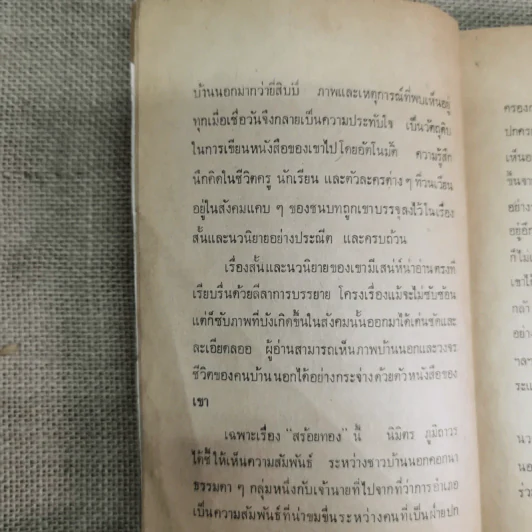 บ้านนอกมากว่ายี่สิบปี ภาพและเหตุการณ์ที่พบเห็นอยู่
ทุกเมื่อเชื่อวันจึงกลายเป็นความประทับใจ เป็นวัตถุดิบ
ในการเขียนหนังสือของเขาไปโดยอัตโนมัติ ความรู้สึก
นึกคิดในชีวิตครู นักเรียน และตัวละครต่าง ๆ ที่วนเวียน
อยู่ในสังคมแคบ ๆ ของชนบทถูกเขาบรรจุลงไว้ในเรื่อง
สั้นและนวนิยายอย่างประณีต และครบถ้วน
เรื่องสั้นและนวนิยายของเขามีเสน่ห์น่าอ่านตรงที่
เรียบรื่นด้วยลีลาการบรรยาย โครงเรื่องแม้จะไม่ซับซ้อน
แต่ก็ซับภาพที่บังเกิดขึ้นในสังคมนั้นออกมาได้เด่นชัดและ
ละเอียดลออ ผู้อ่านสามารถเห็นภาพบ้านนอกและวงจร
ชีวิตของคนบ้านนอกได้อย่างกระจ่างด้วยตัวหนังสือของ
เขา
เฉพาะเรื่อง "สร้อยทอง" นี้ นิมิตร ภูมิถาวร
ได้ชี้ให้เห็นความสัมพันธ์ ระหว่างชาวบ้านนอกคอกนา
ธรรมดา ๆ กลุ่มหนึ่งกับเจ้านายที่ไปจากที่ว่าการอำเภอ
เป็นความสัมพันธ์ที่น่าขมขื่นระหว่างคนที่เป็นฝ่ายปก
ครอง
ปกคร
เห็นอ
ขึ้นจา
อย่าง
อยู่อีก
ก็ไม่
เขาได้
กล้า
อย่าง
ฯลฯ
ระแ
นว
นอ
ร่ว